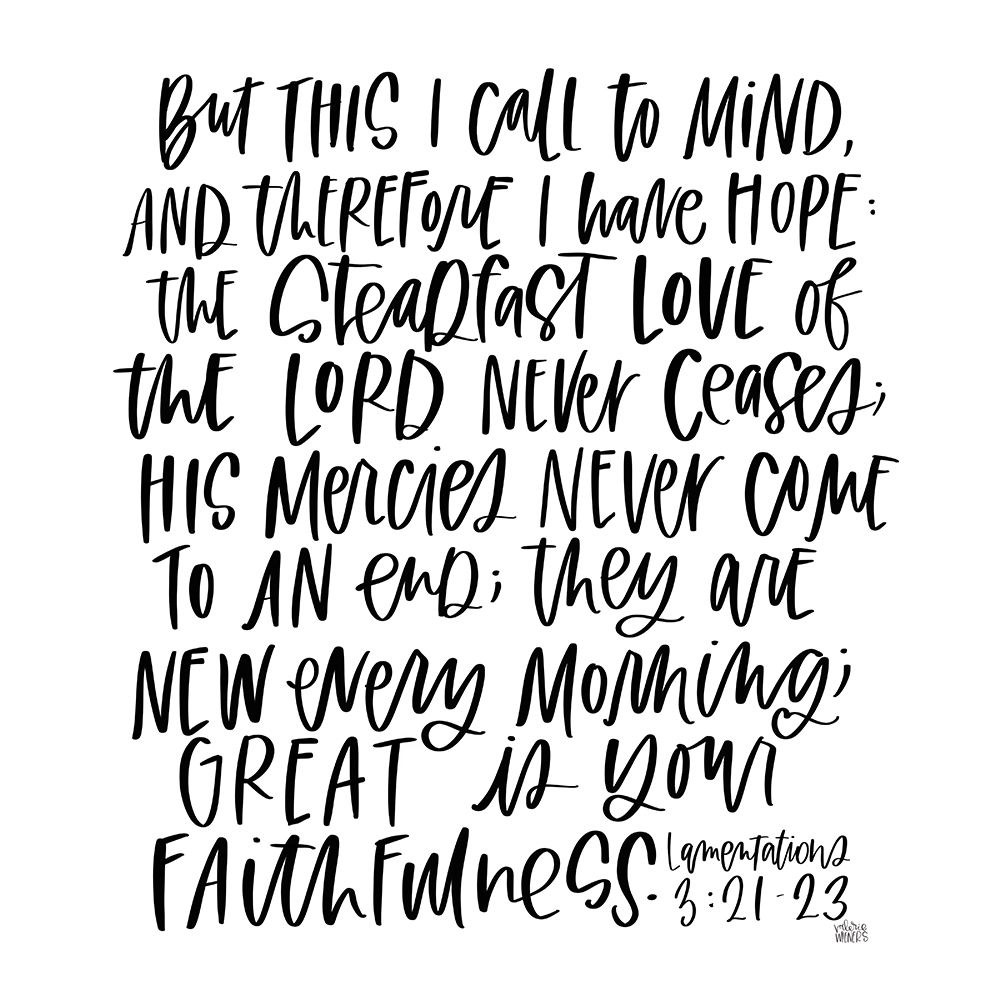 But THIS I call to MiND,
AND therefore I have HOPE:
the Steadfast LOVE of
the LORD NEVer Ceases;
HIS Mercies NEVER COME
TO AN end; they are
NEW every Morning;
GREAT is your
FAithfulness. Lamentations
3:21-23
valerie
WIENERS